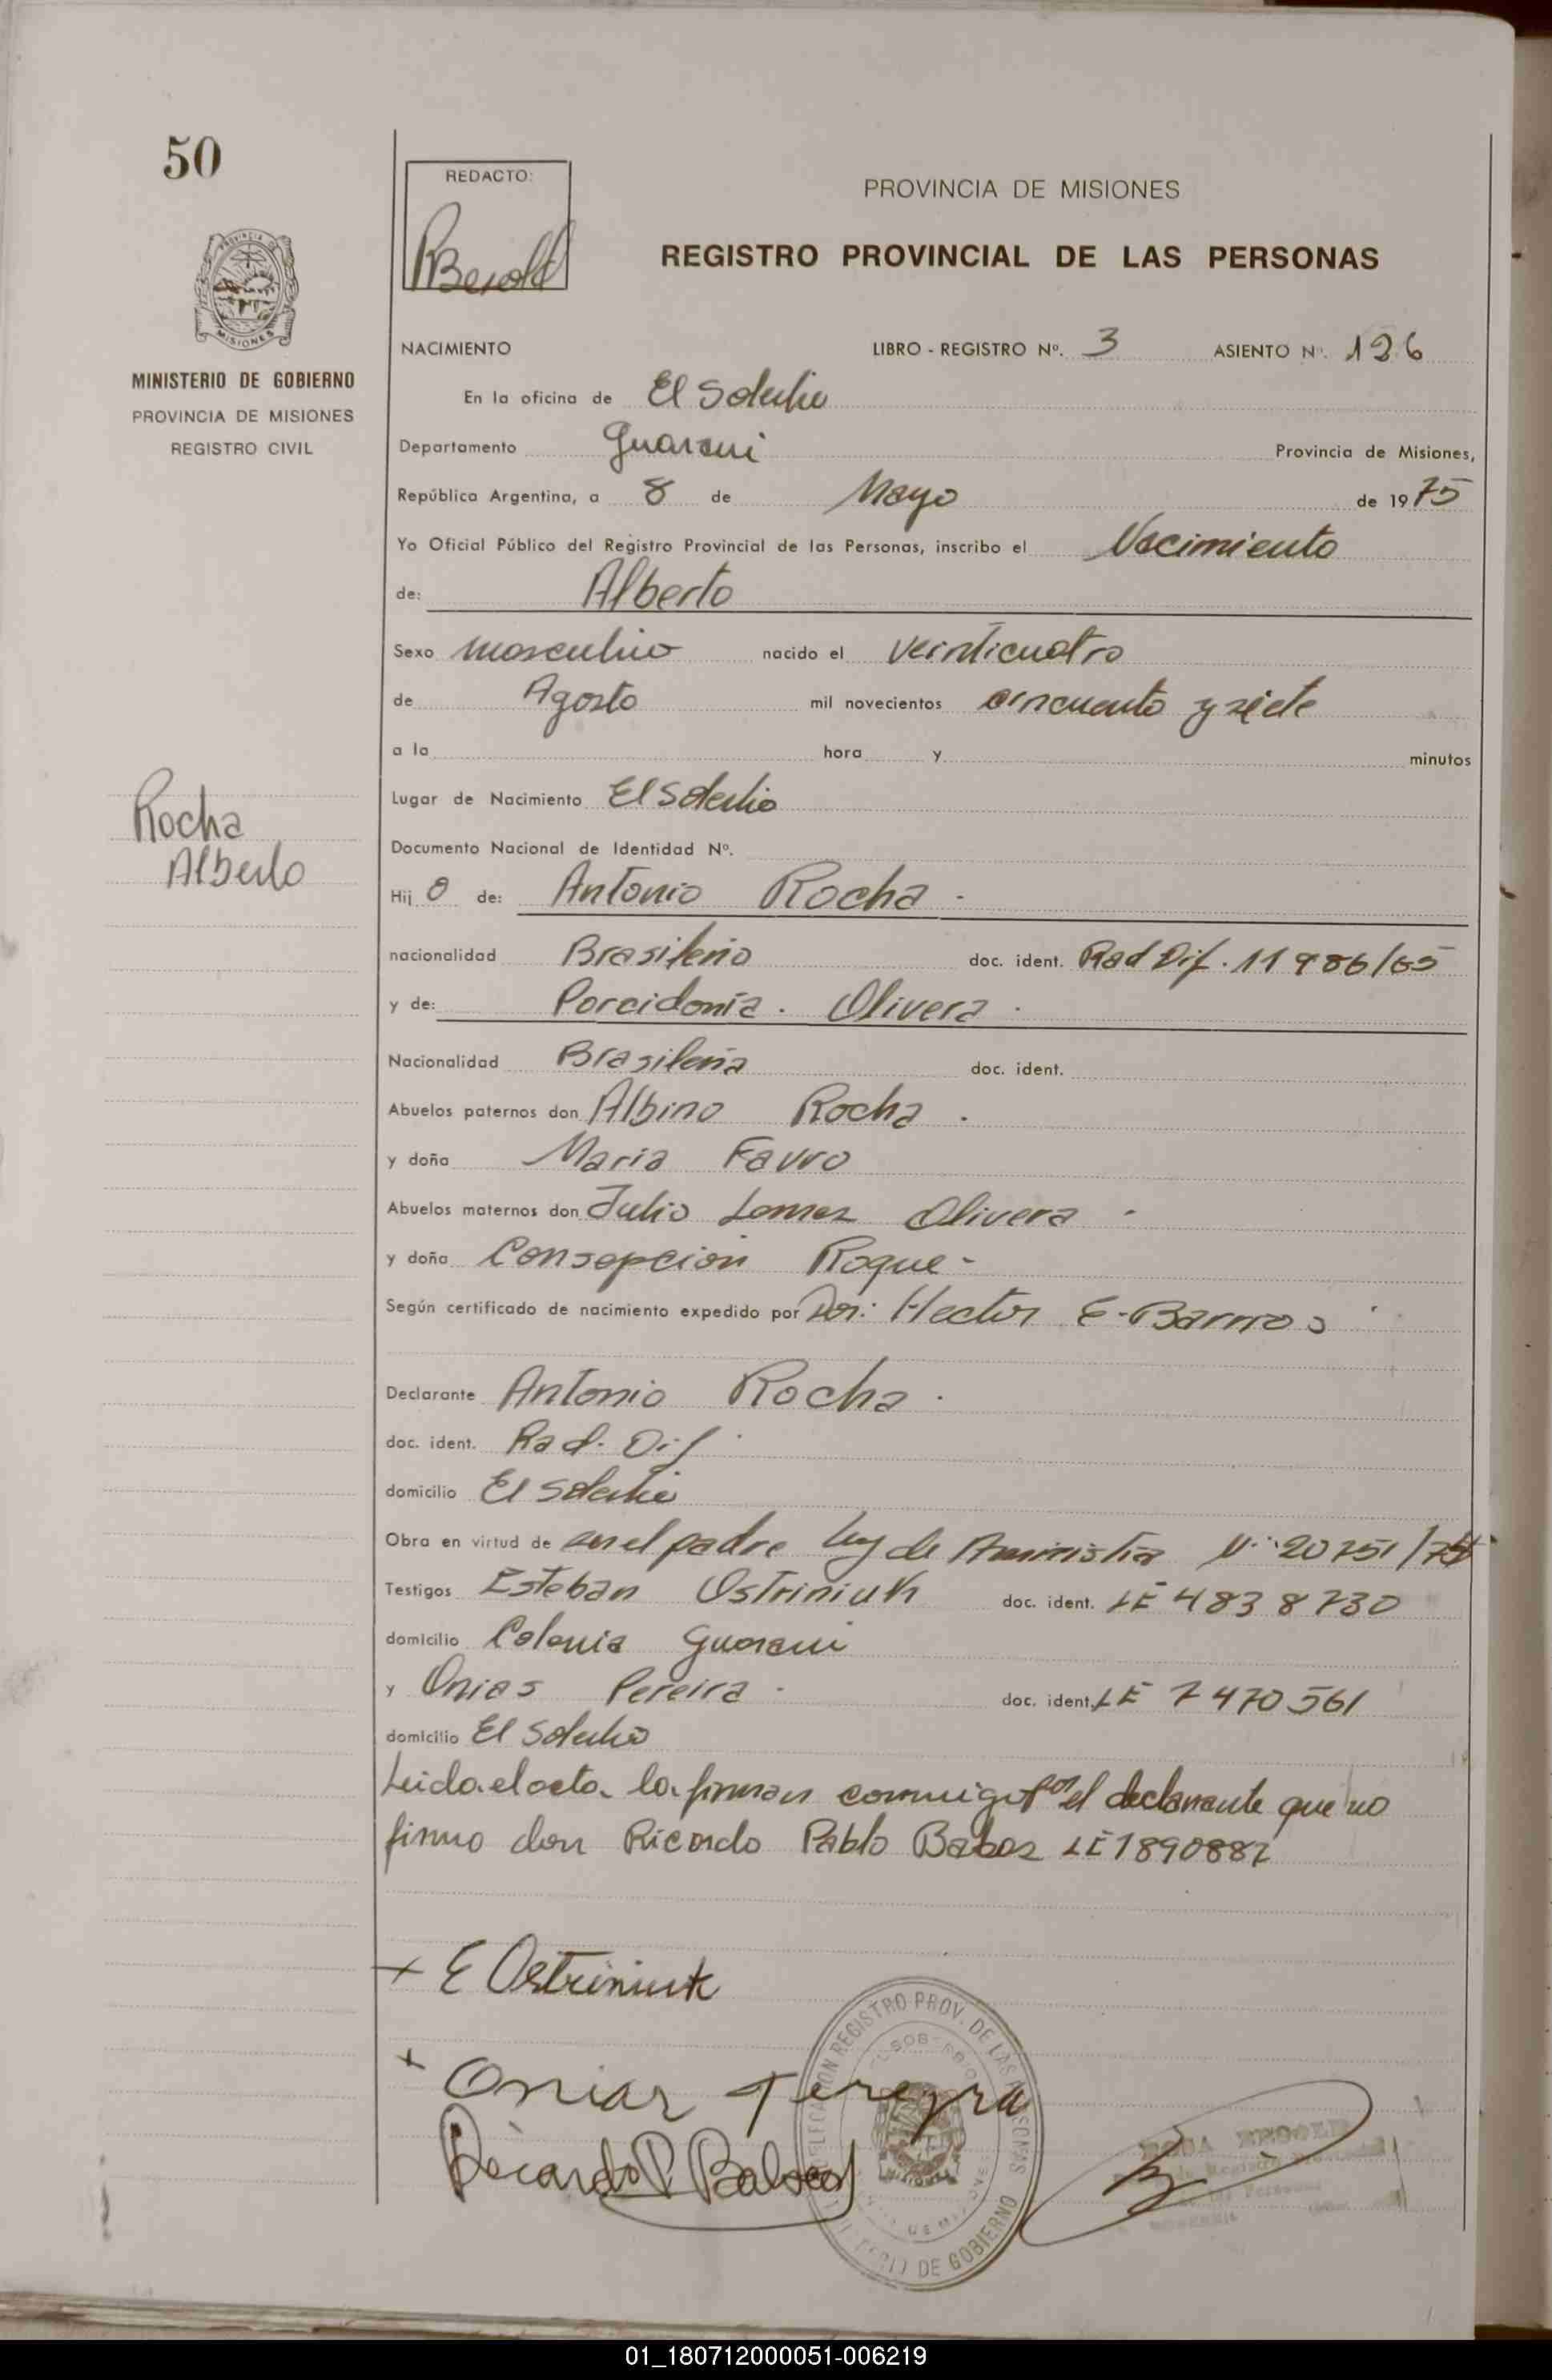 50
REDACTO:
PROVINCIA DE MISIONES
REGISTRO PROVINCIAL DE LAS PERSONAS
MISIONES
MINISTERIO DE GOBIERNO
PROVINCIA DE MISIONES
REGISTRO CIVIL
NACIMIENTO LIBRO - REGISTRO Nº. 3 ASIENTO Nº. 126
En la oficina de El Soberbio
Departamento Guarani Provincia de Misiones,
República Argentina, a 8 de Mayo de 1975
Yo Oficial Público del Registro Provincial de las Personas, inscribo el Nacimiento
de: Alberto
Sexo masculino nacido el veinticuatro
de Agosto mil novecientos cincuenta y siete
a la hora y minutos
Lugar de Nacimiento El Soberbio
Rocha
Alberto
Documento Nacional de Identidad Nº.
Hij o de: Antonio Rocha.
nacionalidad Brasileño doc. ident. Rad Dif. 11986/65
y de: Porcidonia. Olivera.
Nacionalidad Brasileña doc. ident.
Abuelos paternos don Albino Rocha.
y doña Maria Favro
Abuelos maternos don Julio Lemes Olivera.
y doña Consepcion Roque-
Según certificado de nacimiento expedido por Dor: Hector E. Barrros
Declarante Antonio Rocha.
doc. ident. Rad. Dif.
domicilio El Soberbio
Obra en virtud de ser el padre Ley de Aministia Nº 20751/74
Testigos Esteban Ostriniuk doc. ident. LE 4838730
domicilio Colonia Guarani
y Onias Pereira. doc. ident. LE 7470561
domicilio El Soberbio
Leida el acta la firman conmigo por el declarante que no
firmo don Ricardo Pablo Baboz LE 1890882
x E Ostriniuk
x Oniar Pereyra
Ricardo P. Baboz
DELEGACION REGISTRO PROV. DE LAS PERSONAS
MINISTERIO DE GOBIERNO
01_180712000051-006219